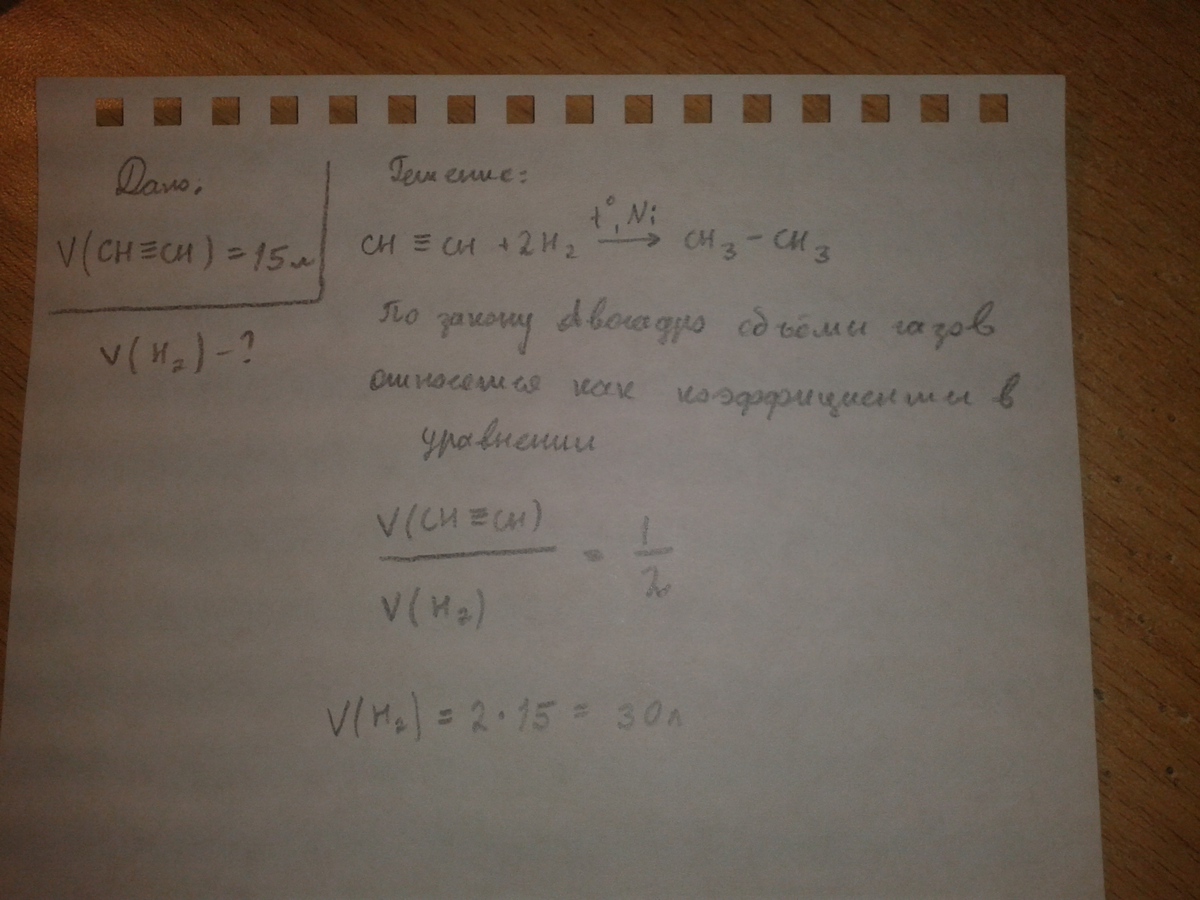 Дано:
V(CH≡CH) = 15л
V(H₂) - ?
Решение:
CH≡CH + 2H₂ \xrightarrow{t°, Ni} CH₃-CH₃
По закону Авогадро объёмы газов
относятся как коэффициенты в
уравнении
V(CH≡CH)
/ V(H₂) = 1/2
V(H₂) = 2·15 = 30л